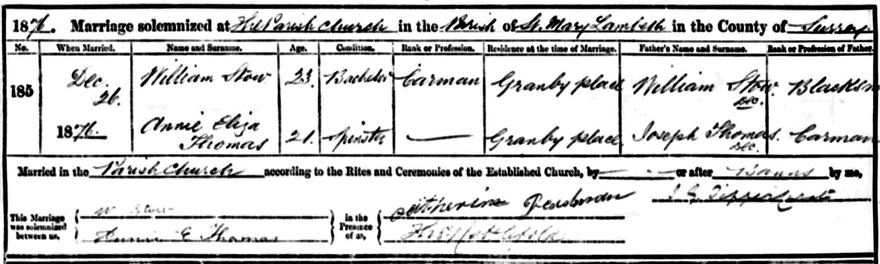 1876. Marriage solemnized at the Parish Church in the Parish of St. Mary Lambeth in the County of Surrey
No. When Married. Name and Surname. Age. Condition. Rank or Profession. Residence at the time of Marriage. Father's Name and Surname. Rank or Profession of Father.
185 Dec. 26. William Stow 23. Bachelor Carman Granby place William Stow. Dec. Blacksm
1876. Annie Eliza Thomas 21. Spinster — Granby place Joseph Thomas. Dec. Carman
Married in the Parish Church according to the Rites and Ceremonies of the Established Church, by — or after Banns by me,
J. G. Curate
This Marriage was solemnized between us, W. Stow Annie E Thomas in the Presence of us, Catherine